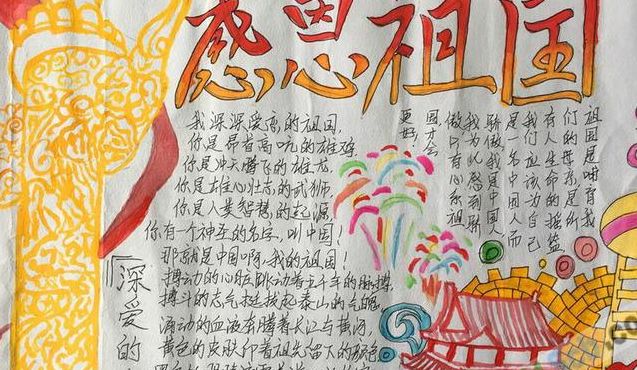 感恩祖国
我深深爱恋的祖国,
你是昂首高吭的雄鸡
你是冲天腾飞的雄龙
你是雄心壮志的武狮
你是人类智慧的起源
你有一个神圣的名字,叫中国!
那就是中国啊,我的祖国!
搏动的心脏跳动着五千年的脉搏
搏斗的志气挺拔起泰山的气魄
涌动的血液奔腾着长江与黄河
黄色的皮肤印着祖先留下的颜色
祖国是哺育我
们的母亲是
有人生的摇篮
我们应该为自己
是一名中国人而
骄傲我是中国人
我为此感到骄
傲只有心系祖
国才会
更好!
『深爱的